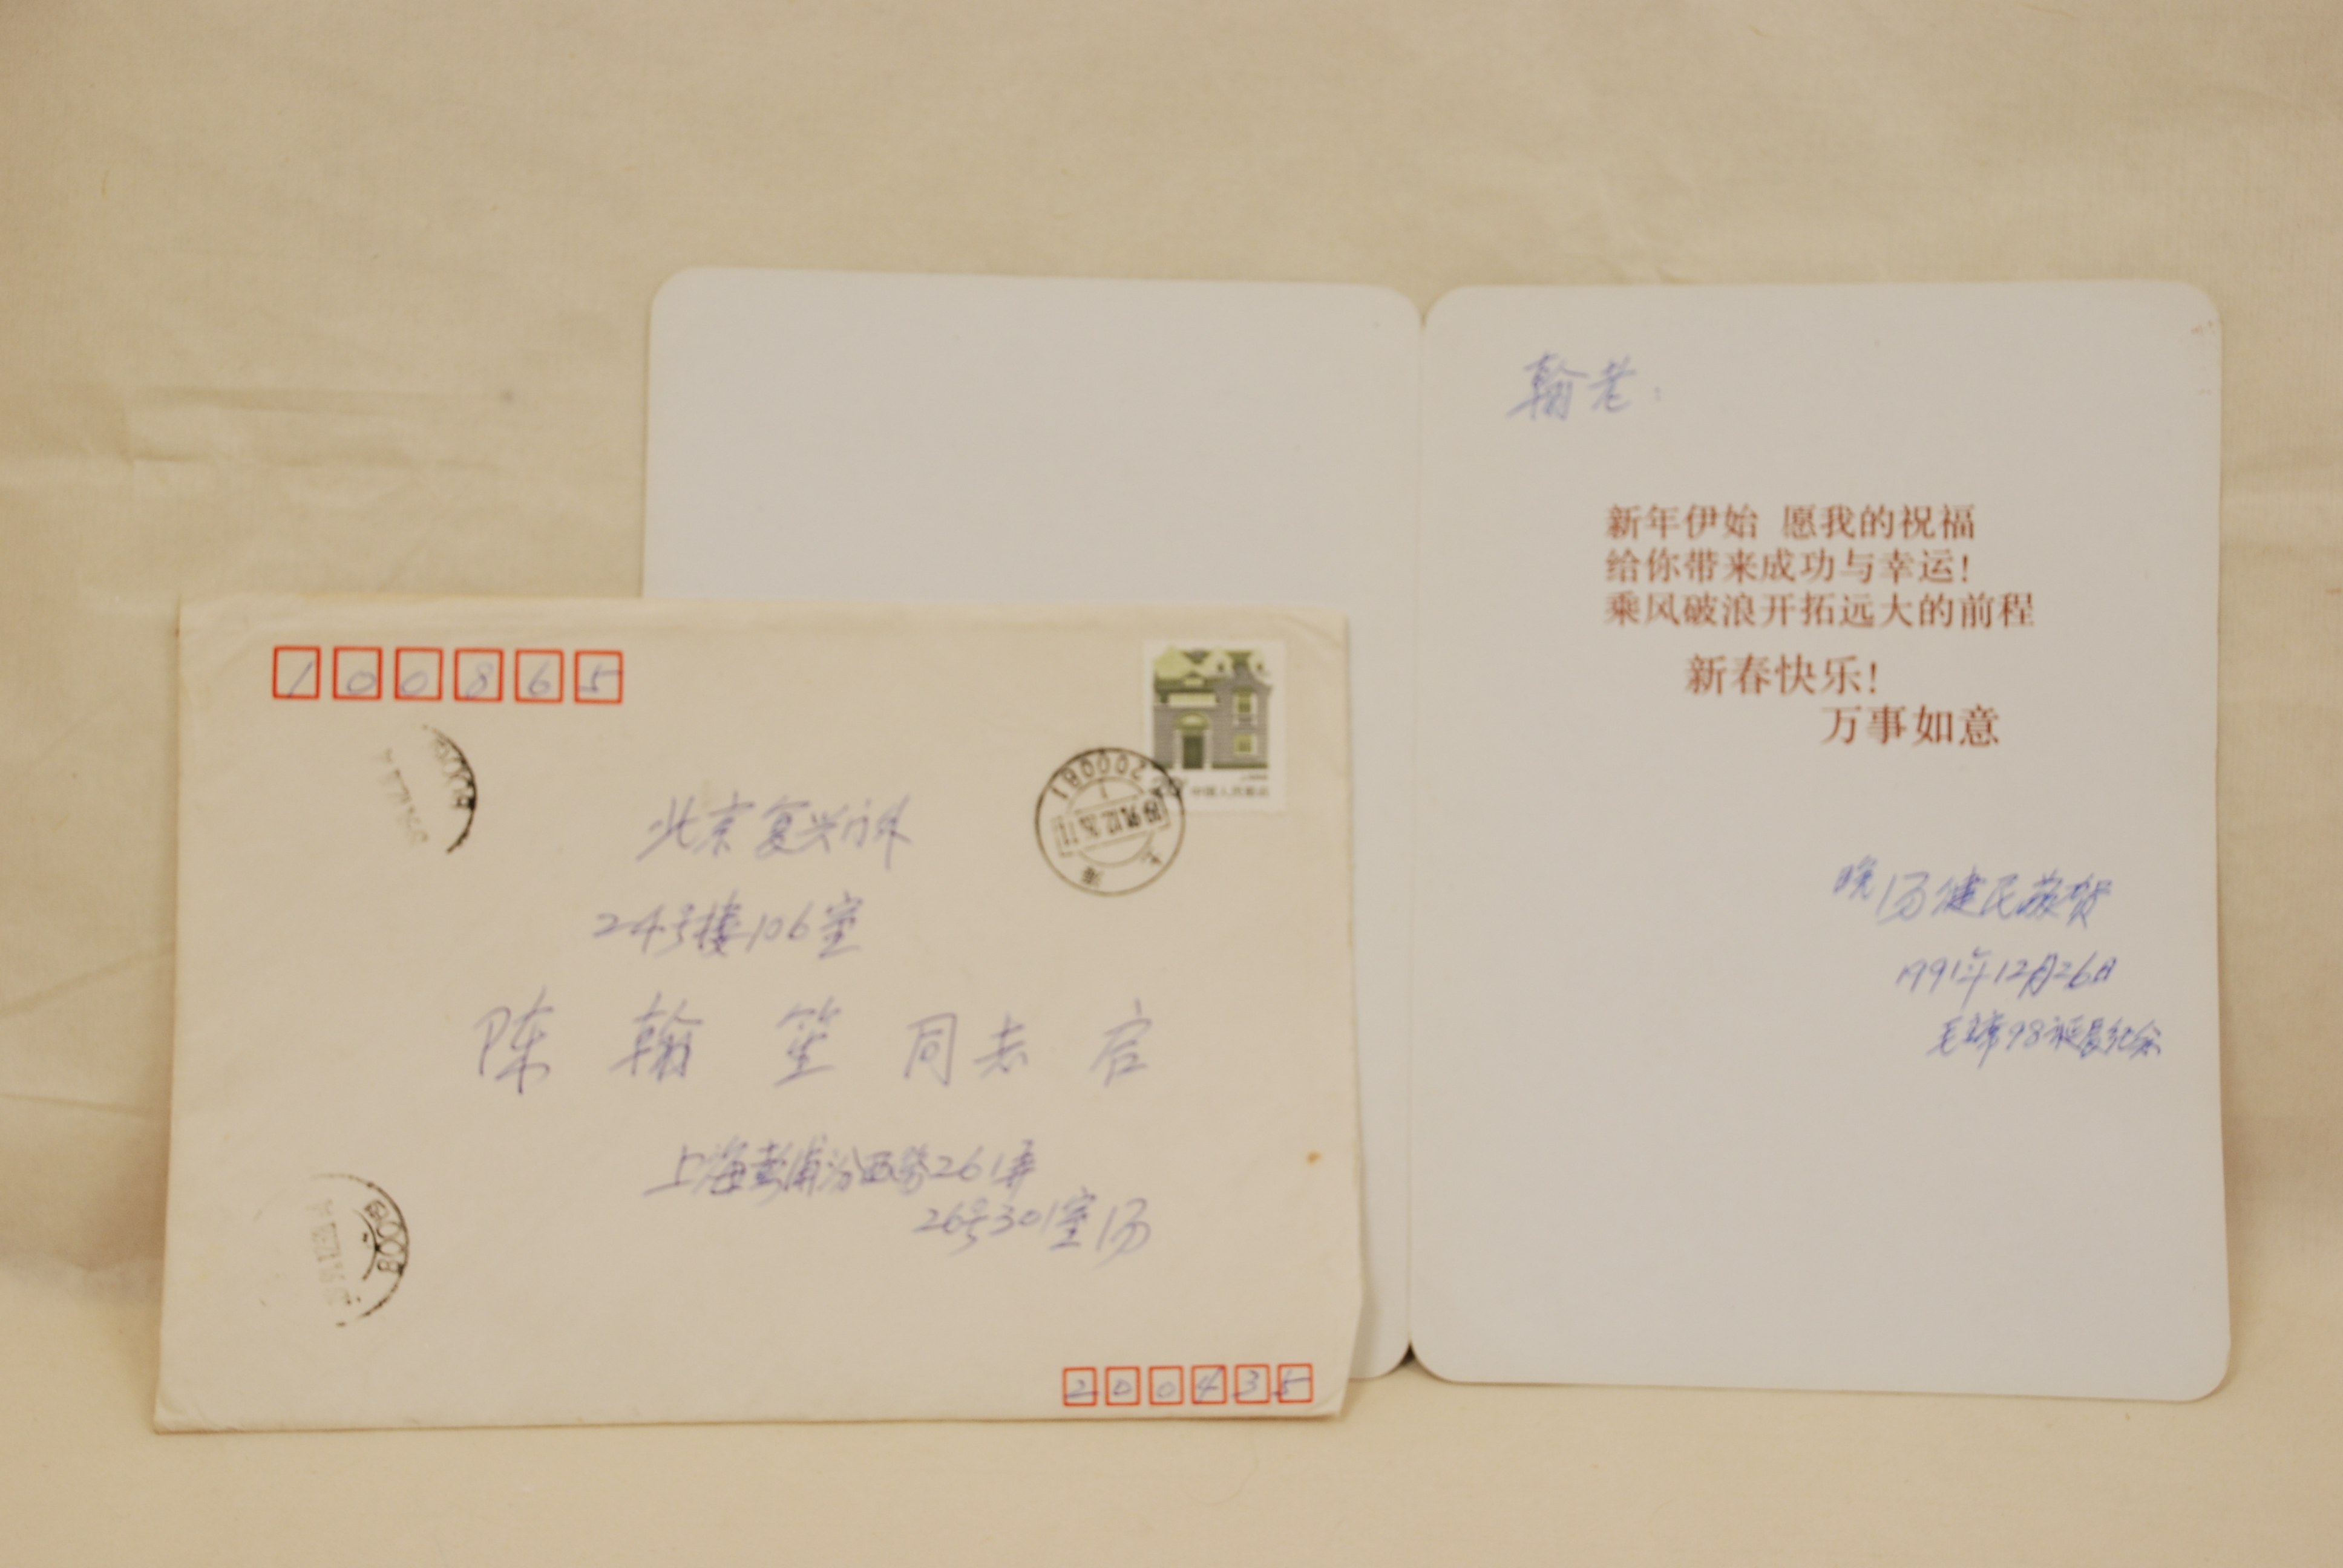 100865
北京复兴门外
24号楼106室
陈翰笙同志 启
上海彭浦汾西路261弄
26号301室 汤
200435
200081
上海
中国人民邮政
翰老:
新年伊始 愿我的祝福
给你带来成功与幸运!
乘风破浪开拓远大的前程
新春快乐!
万事如意
晚 汤健民敬贺
1991年12月26日
毛主席98诞晨纪念